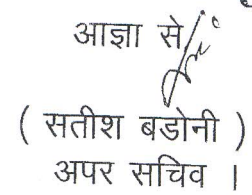 आज्ञा से,
( सतीश बडोनी )
अपर सचिव ।